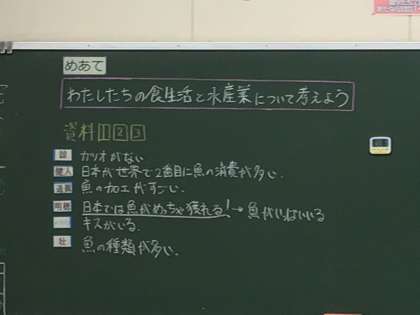 めあて
わたしたちの食生活と水産業について考えよう
資料1 2 3
カツオがない
健人 日本が世界で2番目に魚の消費が多い.
魚の加工がすごい.
明穂 日本では魚がめっちゃ獲れる!→魚がいっぱいいる
キスがいる.
壮 魚の種類が多い.